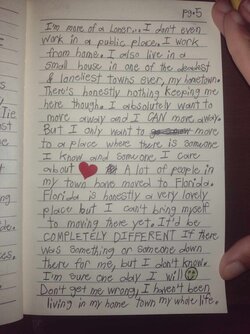 pg. 5
I'm more of a loner... I don't even
work in a public place. I work
from home. I also live in a
small house in one of the
& loneliest towns ever, my hometown.
There's honestly nothing keeping me
here though. I absolutely want to
move away and I CAN move away.
But I only want to move
to a place where there is someone
I know and someone I care
about A lot of people in
my town have moved to Florida.
Florida is honestly a very lovely
place but I can't bring myself
to moving there yet. It'd be
COMPLETELY DIFFERENT If there
was something or someone down
there for me, but I don't know.
I'm sure one day I will
Don't get me wrong, I haven't been
living in my home town my whole life.